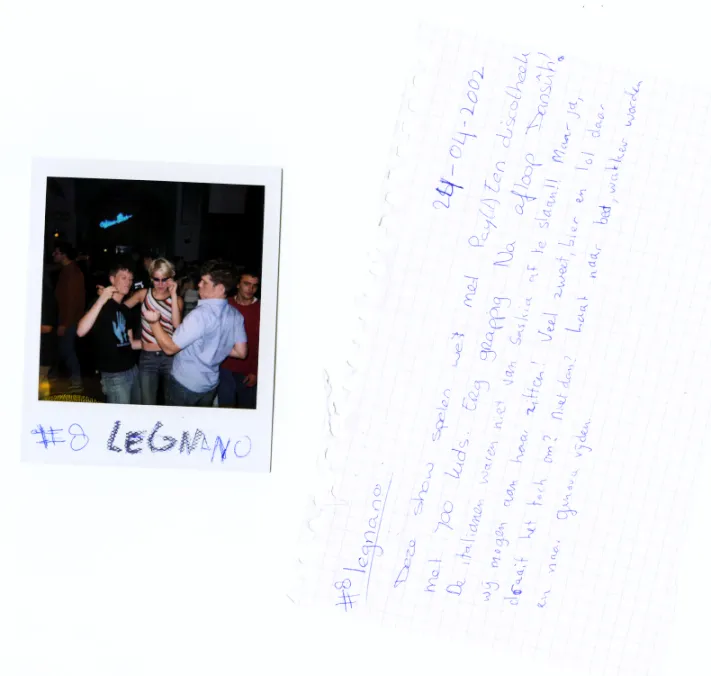 #8 LEGNANO
#8 legnano.
24-04-2002
Deze show spelen we met Pay(n) Een discotheek
met 400 kids. Erg grappig. Na afloop Dansûh!
De italianen waren niet van Saskia af te slaan!! Maar ja,
wij mogen aan haar zitten! Veel zweet, bier en lol daar
draait het toch om? Niet dan? Laat naar bed, wakker worden
en naar Genova rijden